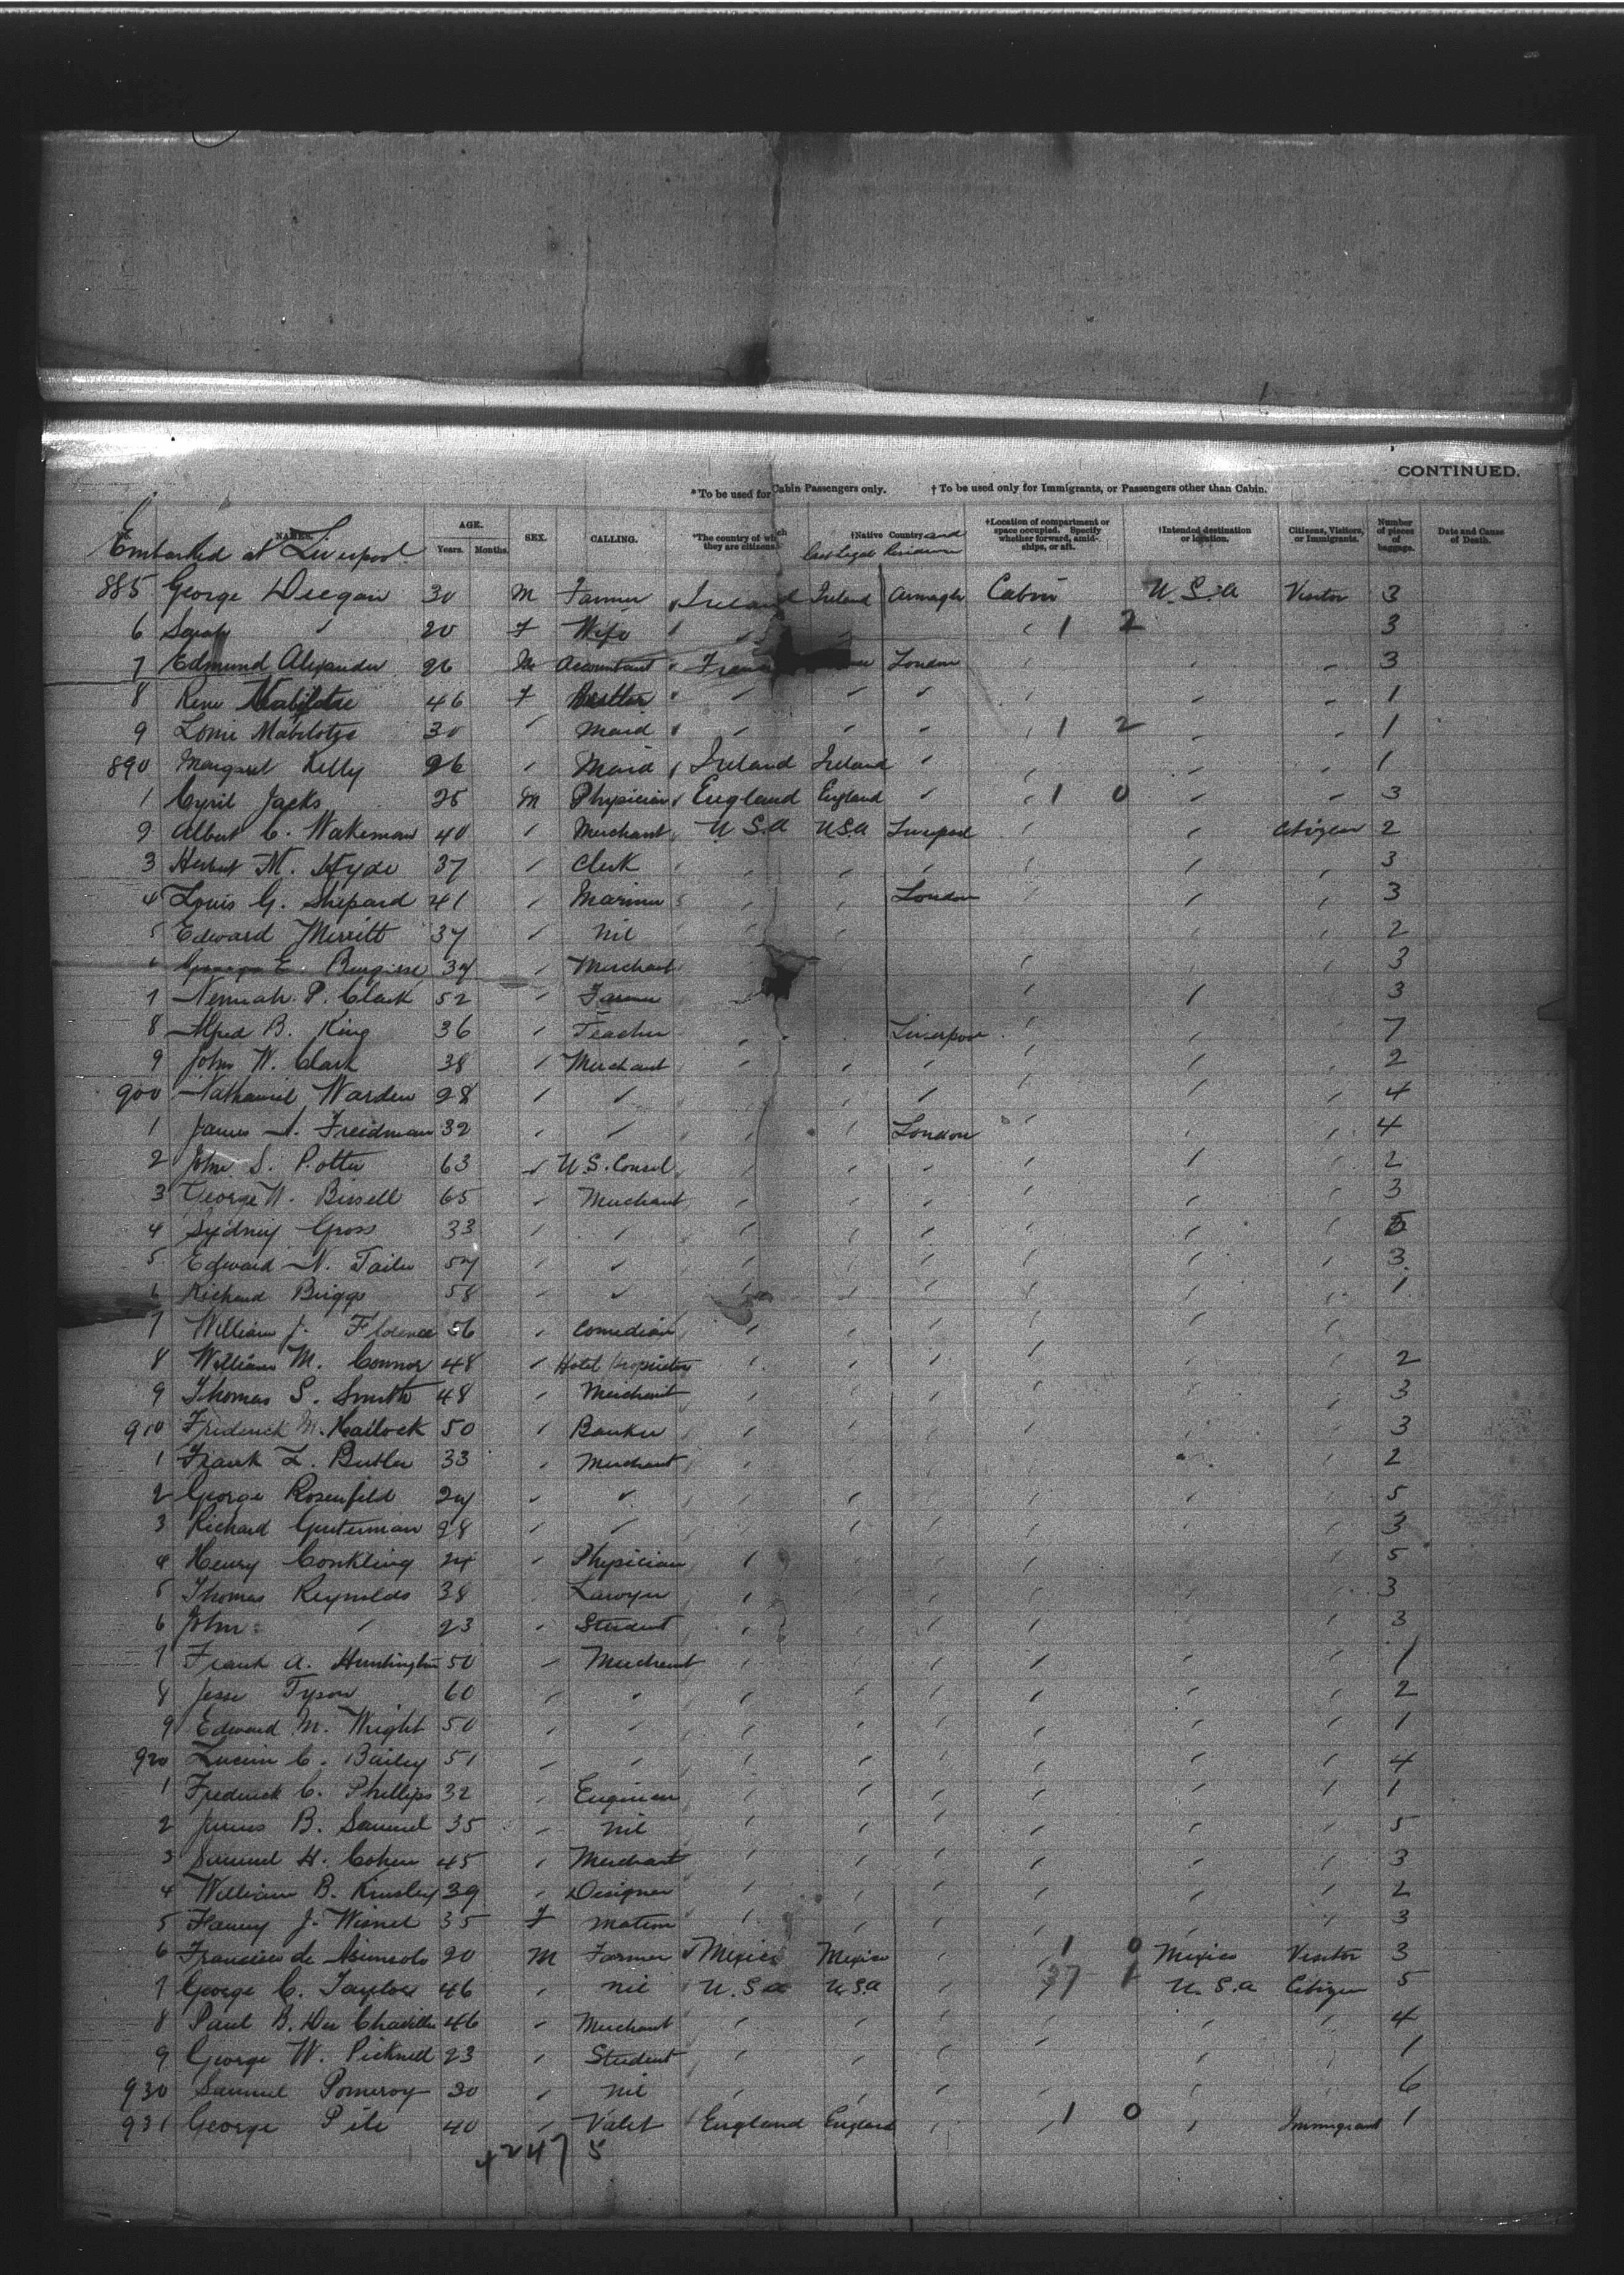 CONTINUED.
* To be used for Cabin Passengers only. † To be used only for Immigrants, or Passengers other than Cabin.
NAMES. AGE. Years. Months. SEX. CALLING. *The country of which they are citizens. †Native Country and last Legal Residence †Location of compartment or space occupied. Specify whether forward, amidships, or aft. †Intended destination or location. Citizens, Visitors, or Immigrants. Number of pieces of baggage. Date and Cause of Death.
Embarked at Liverpool
885 George 30 M Farmer Ireland Ireland Armagh Cabin U.S.A Visitor 3
6 Sarah " 20 F Wife " " 1 2 3
7 Edmund Alexander 26 M Accountant London " " " 3
8 46 F " " " " " " 1
9 30 " Maid " " " " 1 2 " " 1
890 Margaret Kelly 26 " Maid Ireland Ireland " " " " 1
1 Cyril Jacks 25 M Physician England England " " 1 0 " " 3
2 Albert C. Wakeman 40 " Merchant U.S.A U.S.A Liverpool " " Citizen 2
3 Herbert M. Hyde 37 " Clerk " " " " " " 3
4 Louis G. Shepard 41 " Mariner " " London " " " 3
5 Edward Merritt 37 " Nil " " " " " 2
6 E. 34 " Merchant " " " 3
7 P. Clark 52 " Farmer " " 3
8 Alfred B. King 36 " Teacher " Liverpool " " " 7
9 John W. Clark 38 " Merchant " " " " " " 2
900 Nathaniel Warden 28 " " " " " " " " 4
1 James N. Freidman 32 " " " " London " " " 4
2 John S. Potter 63 " U.S. Consul " " " " " " 2
3 George W. Bissell 65 " Merchant " " " " " " 3
4 Sydney Gross 33 " " " " " " " " 5
5 Edward N. Tailer 57 " " " " " " " " 3
6 Richard Briggs 58 " " " " " " " " 1
7 William J. Florence 56 " Comedian " " " " " "
8 William M. Connor 48 " Hotel Proprietor " " " " " " 2
9 Thomas S. Smith 48 " Merchant " " " " " " 3
910 Frederick M. Hallock 50 " Banker " " " " " " 3
1 Frank L. Butler 33 " Merchant " " " " " " 2
2 George Rosenfeld 24 " " " " " " " " 5
3 Richard Guterman 28 " " " " " " " " 3
4 Henry Conkling 24 " Physician " " " " " " 5
5 Thomas Reynolds 38 " Lawyer " " " " " " 3
6 John " 23 " Student " " " " " " 3
7 Frank A. Huntington 50 " Merchant " " " " " " 1
8 Jesse Tyson 60 " " " " " " " " 2
9 Edward M. Wright 50 " " " " " " " " 1
920 C. Bailey 51 " " " " " " " " 4
1 Frederick C. Phillips 32 " Engineer " " " " " " 1
2 B. Samuel 35 " Nil " " " " " " 5
3 Samuel H. Cohen 45 " Merchant " " " " " " 3
4 William B. Kinsley 39 " Designer " " " " " " 2
5 Fanny J. 35 F Matron " " " " " " 3
6 Francisco de 20 M Farmer Mexico Mexico " 1 0 Mexico Visitor 3
7 George C. Taylor 46 " Nil U.S.A U.S.A " 37 1 U.S.A Citizen 5
8 Paul B. Du 46 " Merchant " " " " " " 4
9 George W. Picknell 23 " Student " " " " " " 1
930 Samuel Pomeroy 30 " Nil " " " " " " 6
931 George Pile 40 " Valet England England " " 1 0 " Immigrant 1
247 5